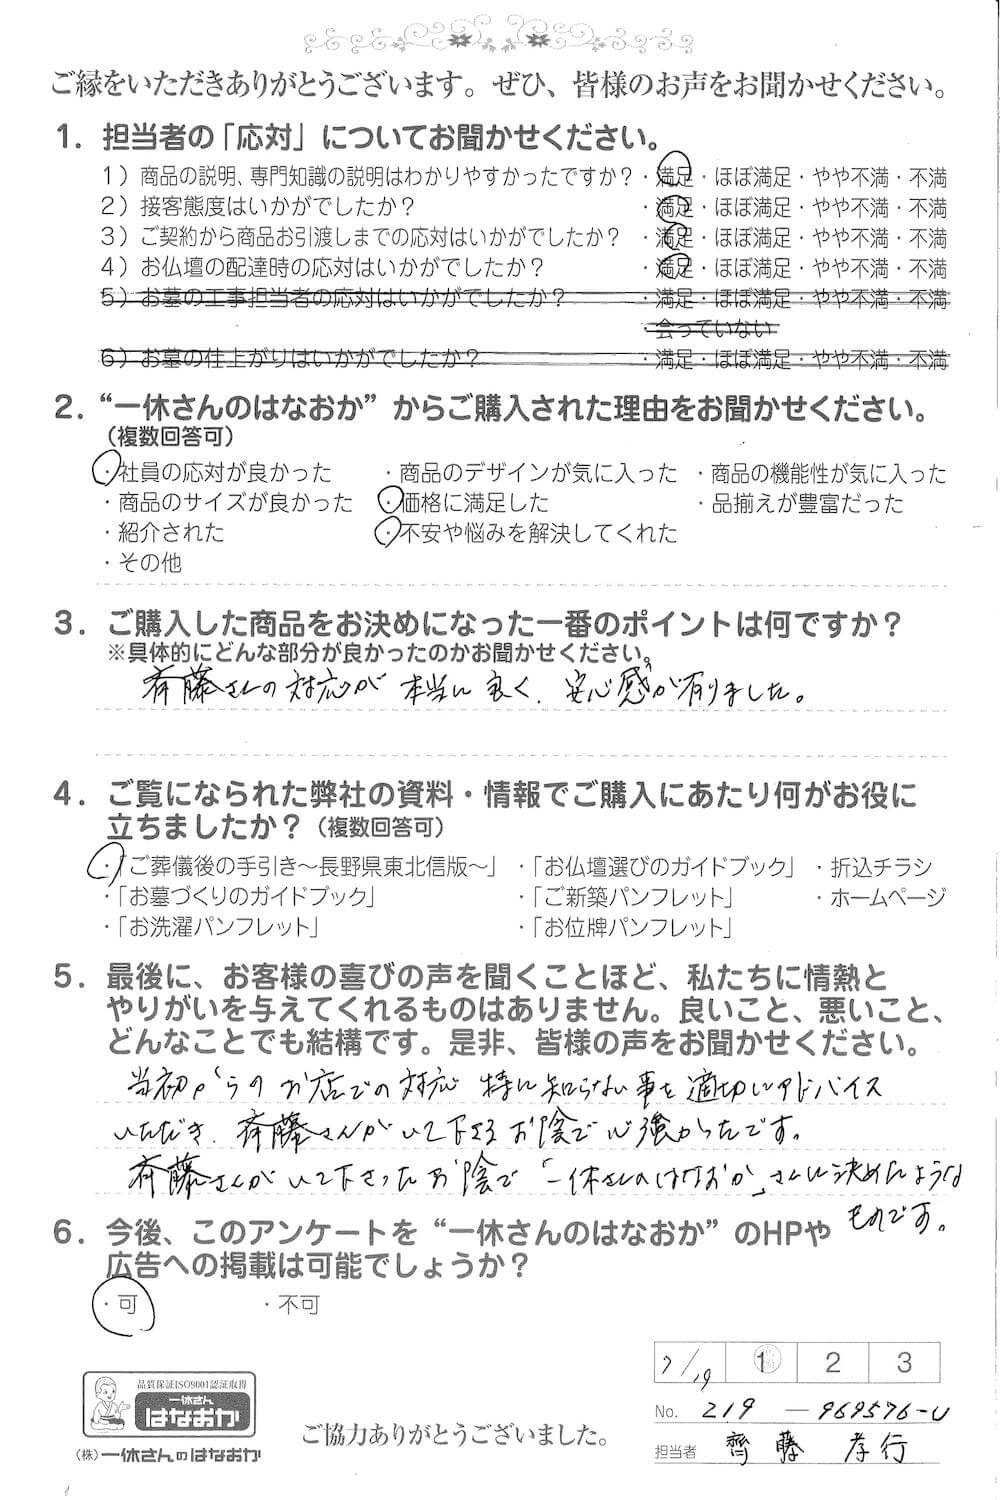 ご縁をいただきありがとうございます。ぜひ、皆様のお声をお聞かせください。
1. 担当者の「応対」についてお聞かせください。
1）商品の説明、専門知識の説明はわかりやすかったですか？・満足・ほぼ満足・やや不満・不満
2）接客態度はいかがでしたか？ ・満足・ほぼ満足・やや不満・不満
3）ご契約から商品お引渡しまでの応対はいかがでしたか？ ・満足・ほぼ満足・やや不満・不満
4）お仏壇の配達時の応対はいかがでしたか？ ・満足・ほぼ満足・やや不満・不満
5）お墓の工事担当者の応対はいかがでしたか？ ・満足・ほぼ満足・やや不満・不満
・会っていない
6）お墓の仕上がりはいかがでしたか？ ・満足・ほぼ満足・やや不満・不満
2. “一休さんのはなおか”からご購入された理由をお聞かせください。
（複数回答可）
・社員の応対が良かった ・商品のデザインが気に入った ・商品の機能性が気に入った
・商品のサイズが良かった ・価格に満足した ・品揃えが豊富だった
・紹介された ・不安や悩みを解決してくれた
・その他
3. ご購入した商品をお決めになった一番のポイントは何ですか？
※具体的にどんな部分が良かったのかお聞かせください。
斉藤さんの対応が本当に良く、安心感が有りました。
4. ご覧になられた弊社の資料・情報でご購入にあたり何がお役に
立ちましたか？（複数回答可）
・「ご葬儀後の手引き～長野県東北信版～」 ・「お仏壇選びのガイドブック」 ・折込チラシ
・「お墓づくりのガイドブック」 ・「ご新築パンフレット」 ・ホームページ
・「お洗濯パンフレット」 ・「お位牌パンフレット」
5. 最後に、お客様の喜びの声を聞くことほど、私たちに情熱と
やりがいを与えてくれるものはありません。良いこと、悪いこと、
どんなことでも結構です。是非、皆様の声をお聞かせください。
当初からのお店での対応 特に知らない事を適切にアドバイス
いただき、斉藤さんがいて下さるお陰で心強かったです。
斉藤さんがいて下さったお陰で「一休さんのはなおか」さんに決めたような
ものです。
6. 今後、このアンケートを“一休さんのはなおか”のHPや
広告への掲載は可能でしょうか？
・可 ・不可
7/19 1 2 3
品質保証ISO9001認証取得
一休さん
はなおか
（株）一休さんのはなおか
ご協力ありがとうございました。
No. 219 — 969576-U
担当者 齊藤 孝行